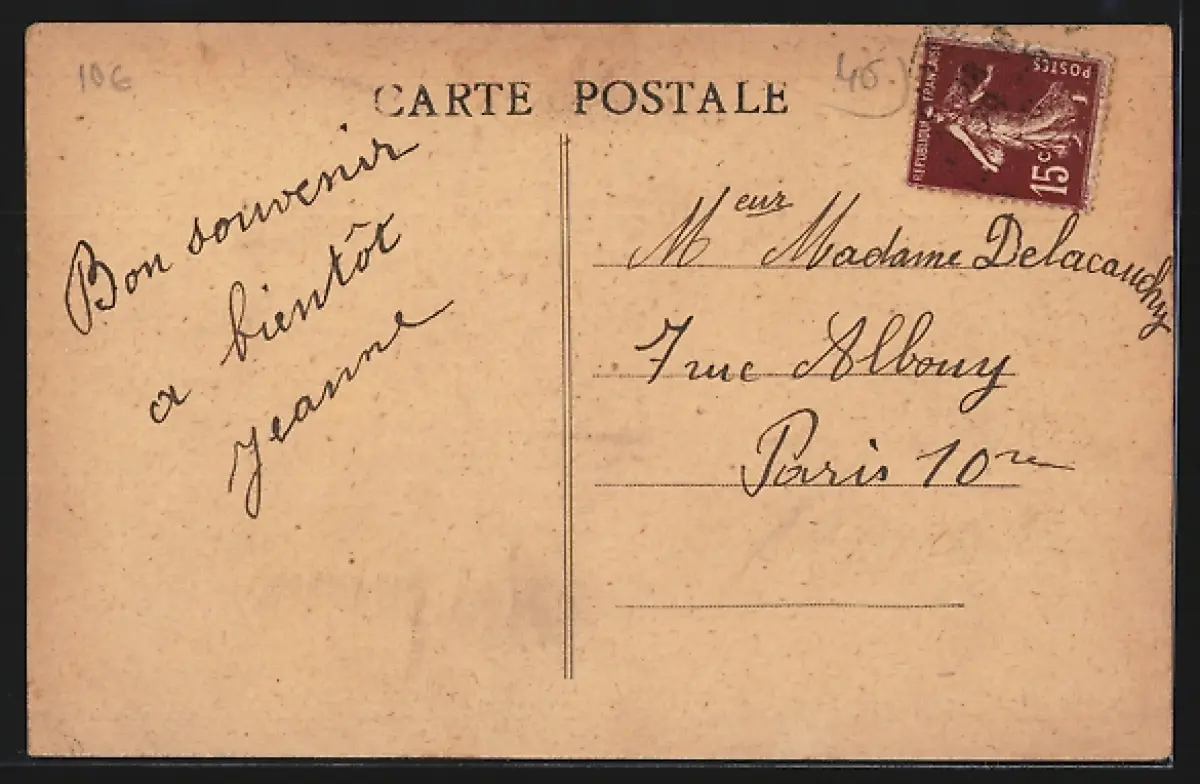 10€
CARTE POSTALE
RÉPUBLIQUE FRANÇAISE
POSTES
15c
Bon souvenir
a bientôt
Jeanne
Meur Madame Delacauchy
7 rue Albouy
Paris 10re